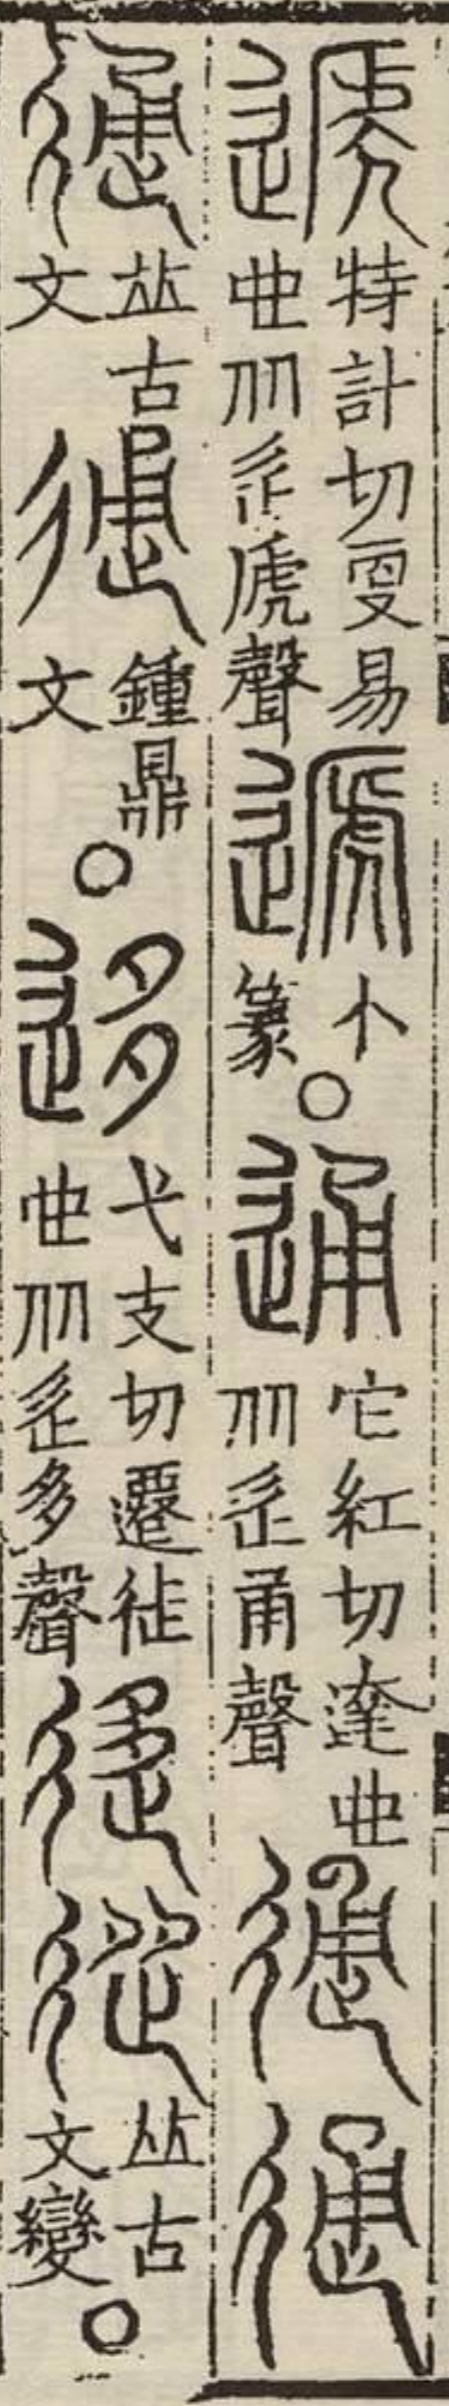 遞特計切㪅易也从辵虒聲遞小篆○通它紅切達也从辵甬聲通通
通竝古文通鍾鼎文○迻弋支切遷徙也从辵多聲迻迻竝古文變○